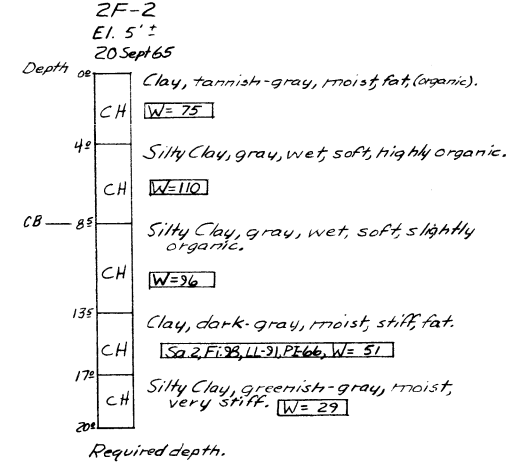 2F-2
El. 5' ±
20 Sept 65
Depth
0.0
Clay, tannish-gray, moist, fat, (organic).
CH
W= 75
4.0
Silty Clay, gray, wet, soft, highly organic.
CH
W=110
CB 8.5
Silty Clay, gray, wet, soft, slightly
organic.
CH
W=96
13.5
Clay, dark-gray, moist, stiff, fat.
CH
Sa.2, Fi.98, LL-91, PI-66, W= 51
17.0
Silty Clay, greenish-gray, moist,
very stiff. W= 29
CH
20.0
Required depth.